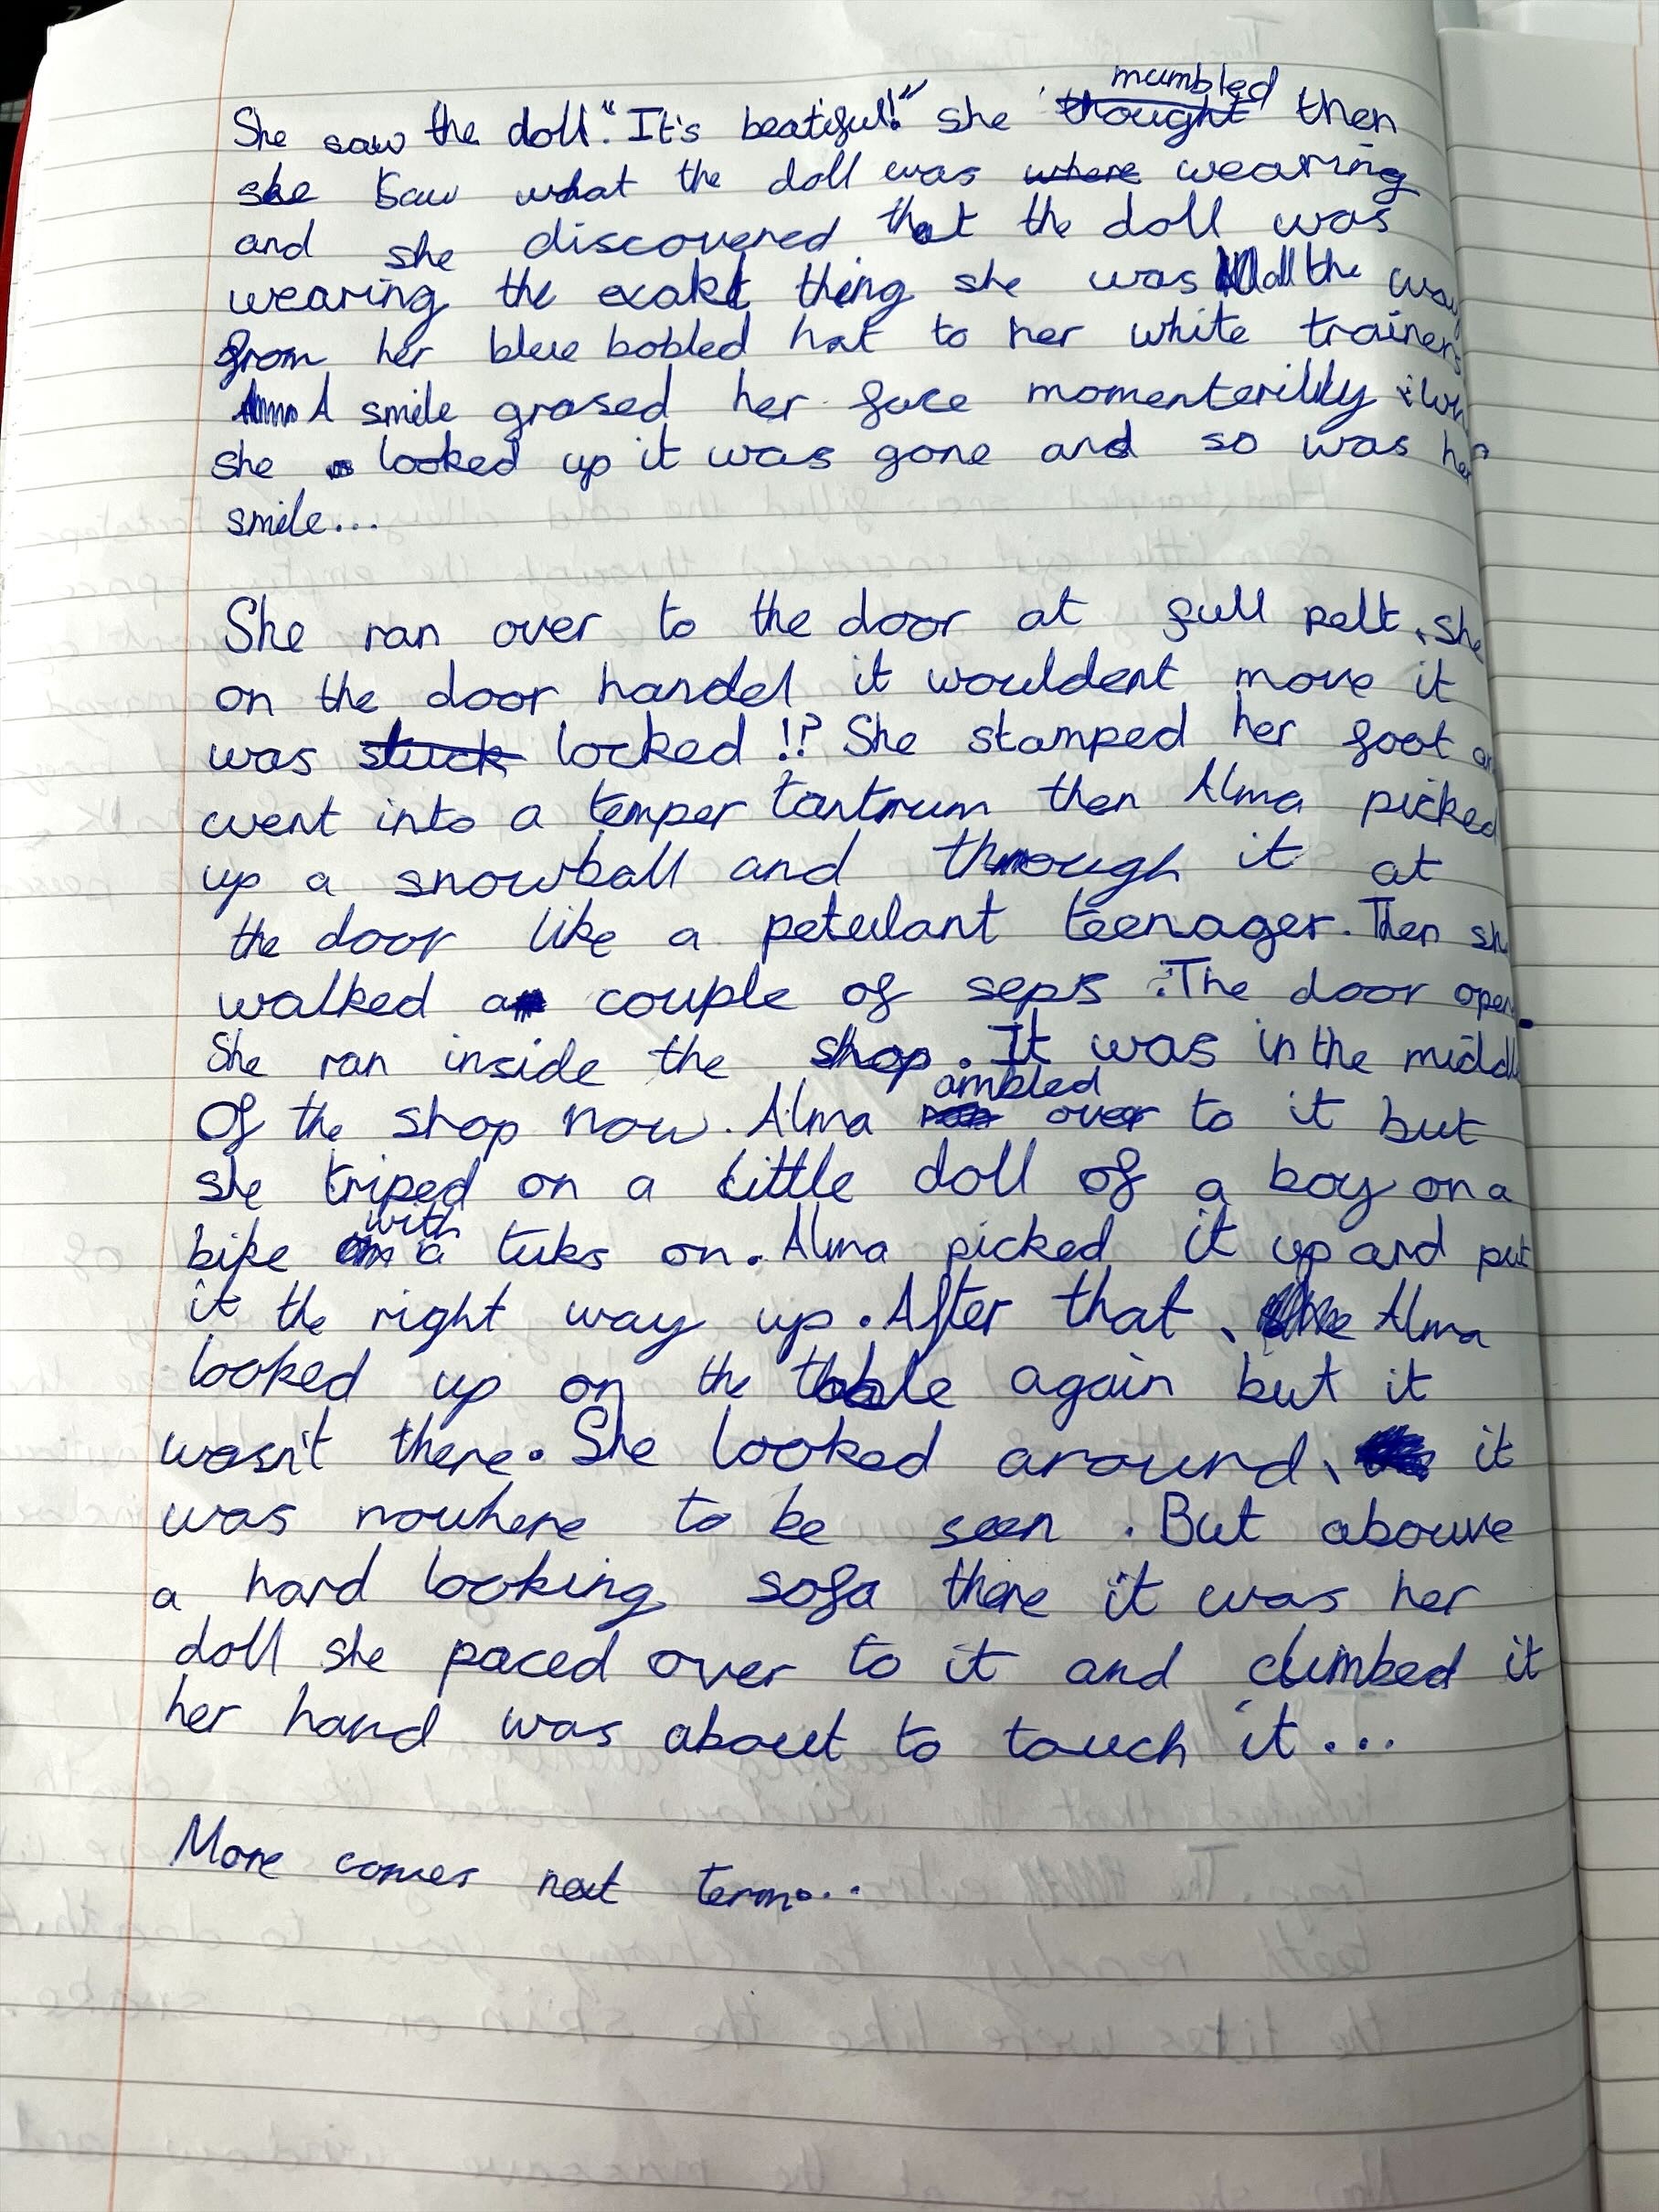 She saw the doll. "It's beatiful!" she mumbled then
she saw what the doll was wearing
and she discovered that the doll was
wearing the exakt thing she was all the way
from her blue bobled hat to her white trainers
A smile grased her face momenterilly
she looked up it was gone and so was her
smile...
She ran over to the door at full pelt, she
on the door handel it wouldent move it
was locked !? She stamped her foot
went into a temper tantrum then Alma picked
up a snowball and through it at
the door like a petulant teenager. Then
walked a couple of seps. The door open
She ran inside the shop. It was in the middle
of the shop now. Alma ambled over to it but
she triped on a little doll of a boy on a
bike with a tuks on. Alma picked it up and put
it the right way up. After that, Alma
looked up on the table again but it
wasn't there. She looked around, it
was nowhere to be seen. But abouve
a hard looking sofa there it was her
doll she paced over to it and climbed it
her hand was about to touch it...
More comes next term...